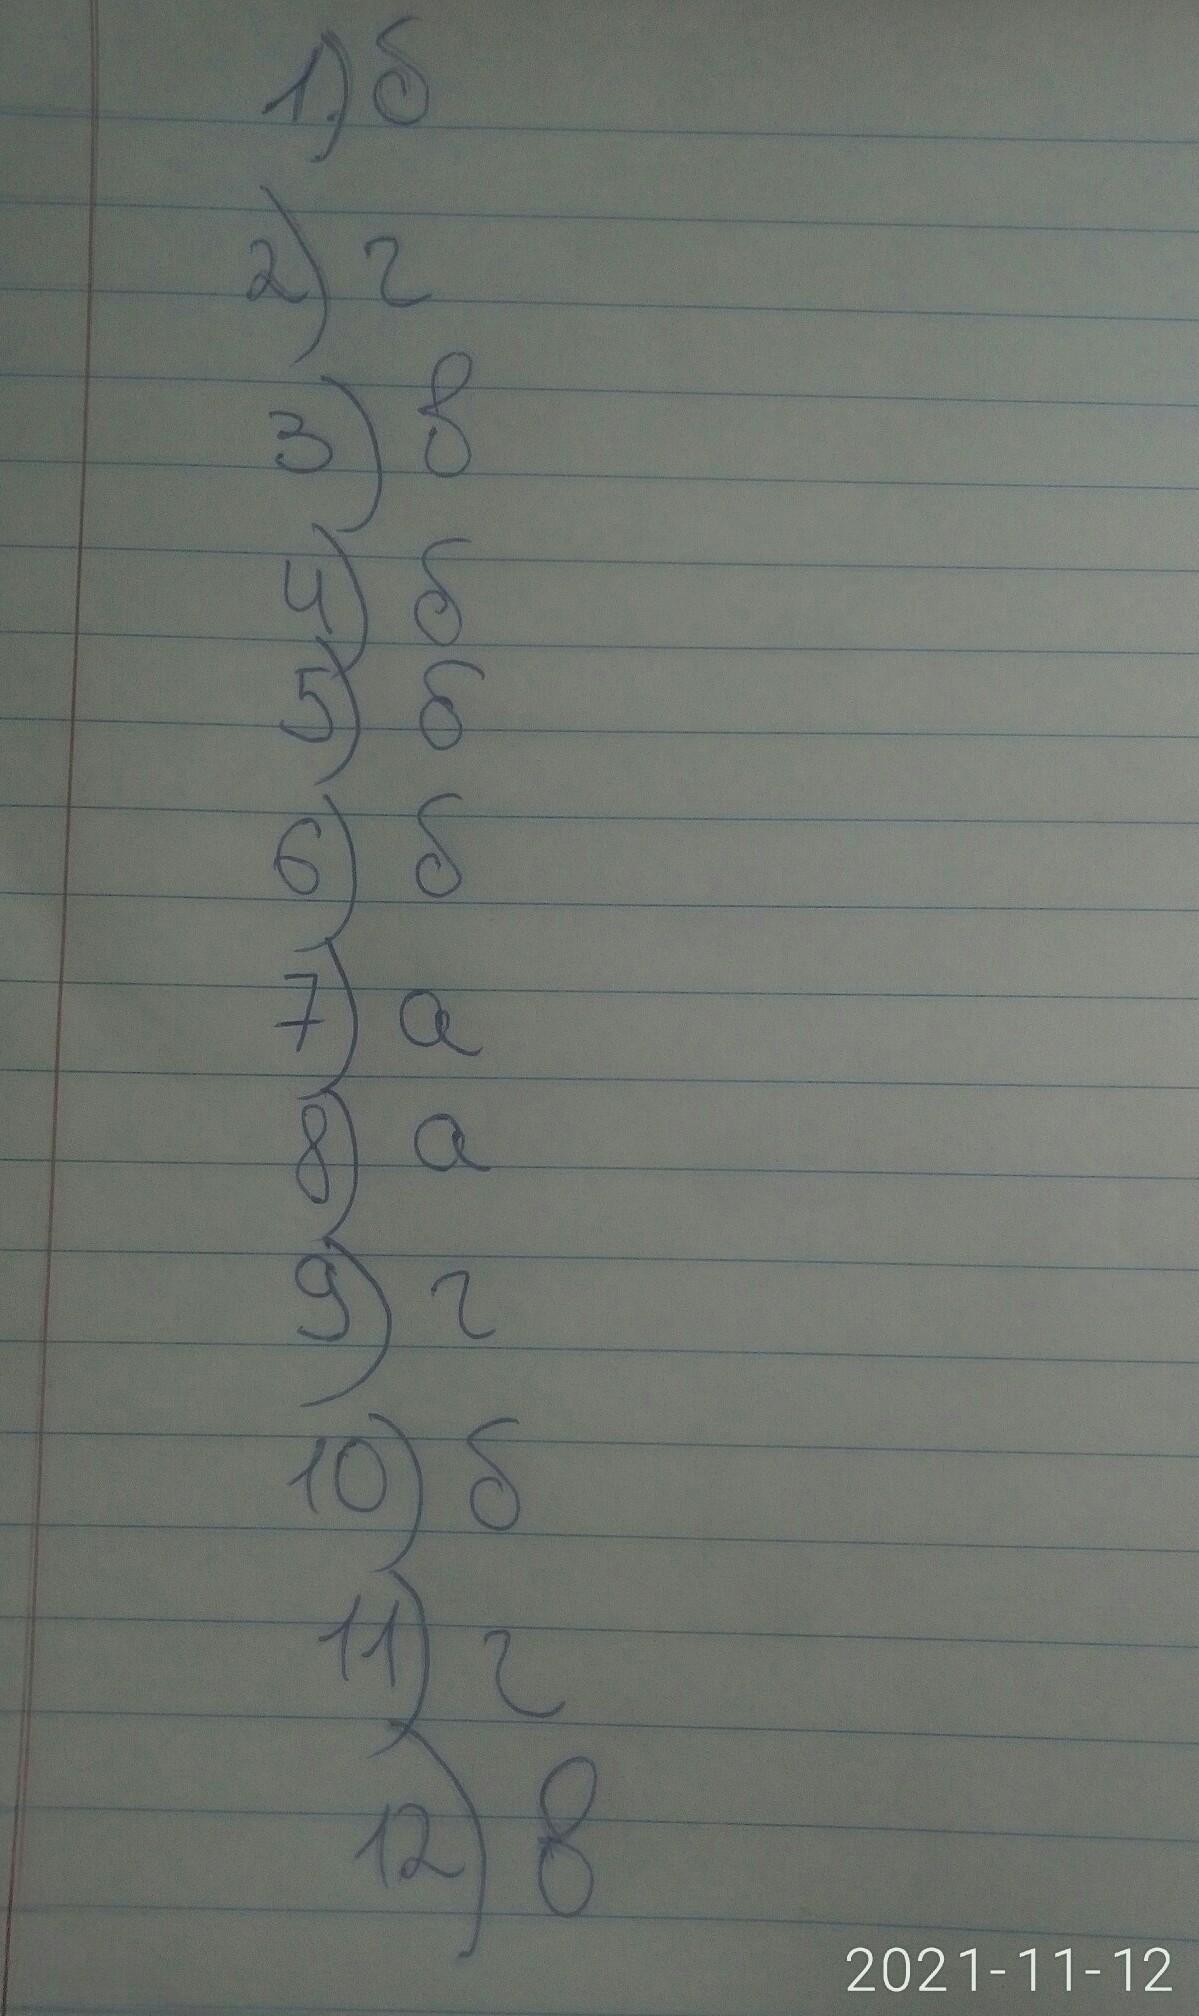 1) б
2) г
3) в
4) б
5) б
6) б
7) а
8) а
9) г
10) б
11) г
12) в
2021-11-12